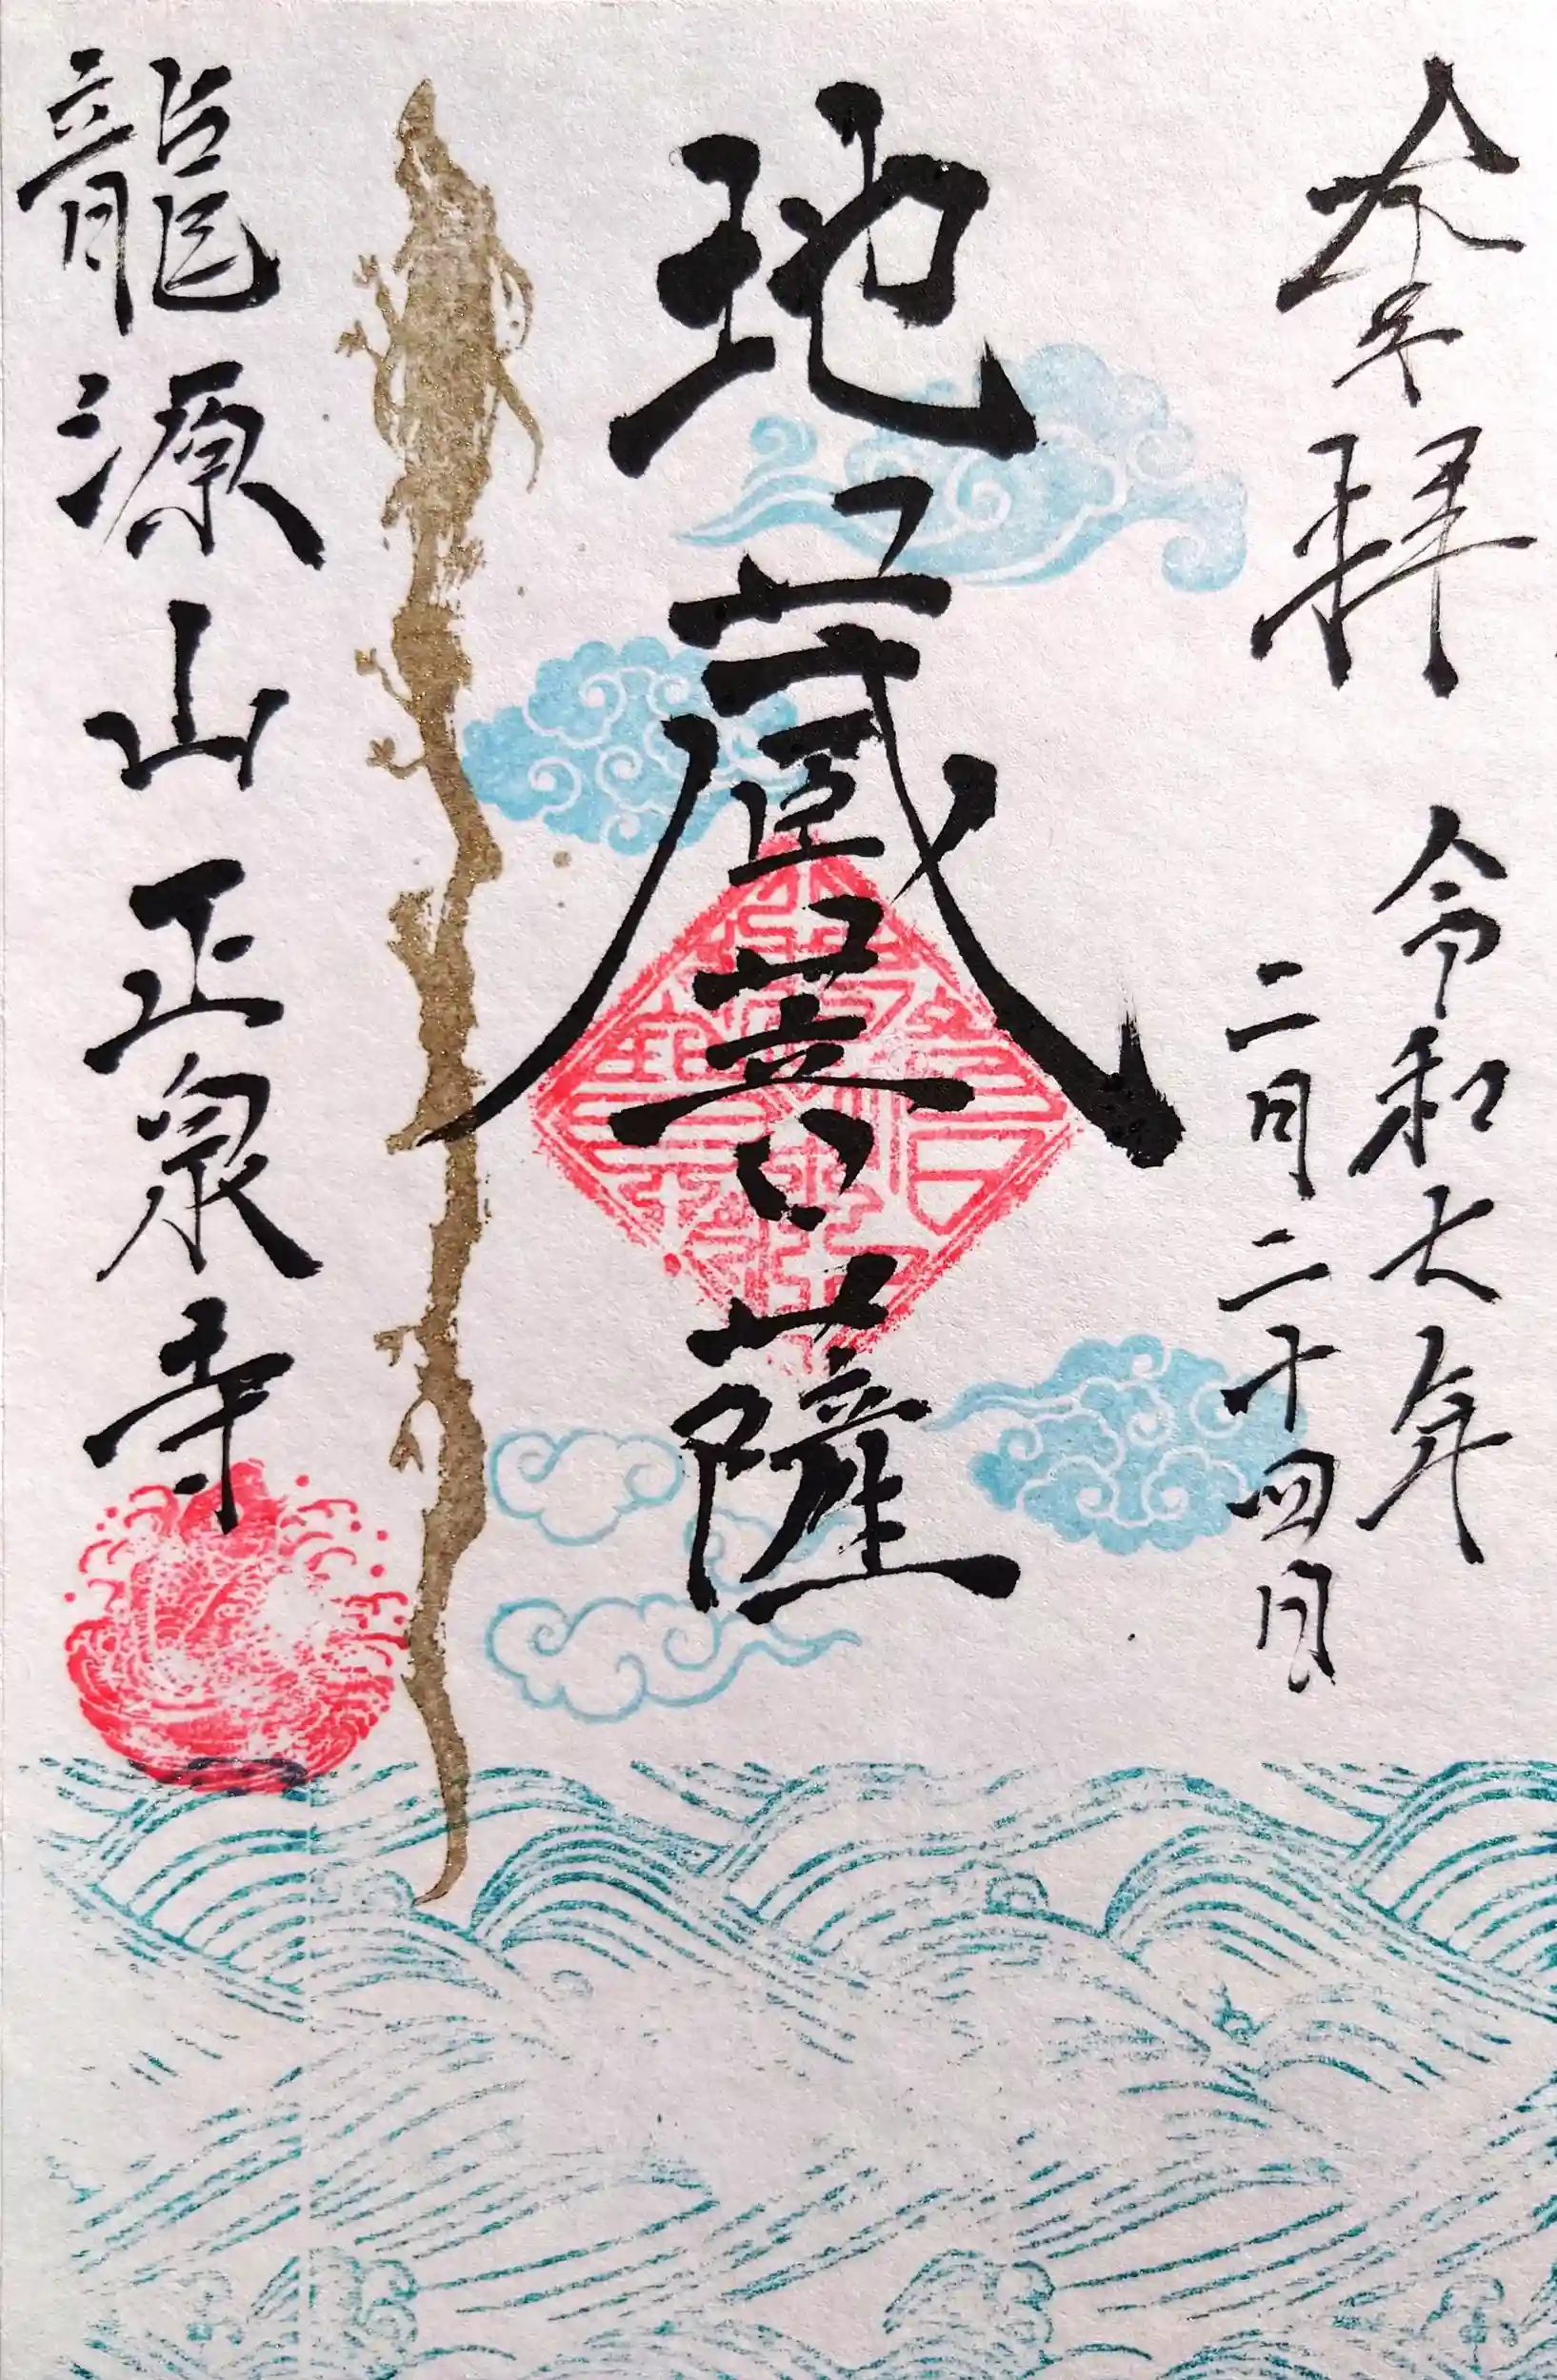 奉拝
令和七年
二月二十四日
地蔵菩薩
龍源山正泉寺